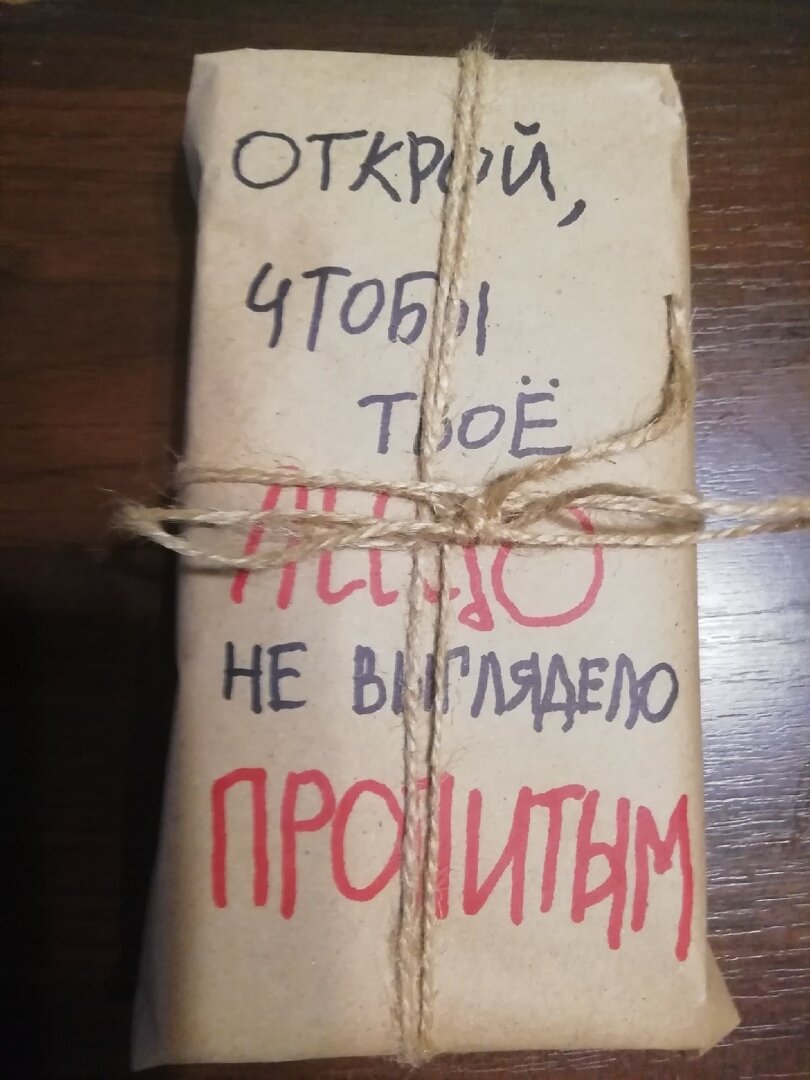 ОТКРОЙ,
ЧТОБЫ
ТВОЁ
ЛИЦО
НЕ ВЫГЛЯДЕЛО
ПРОПИТЫМ